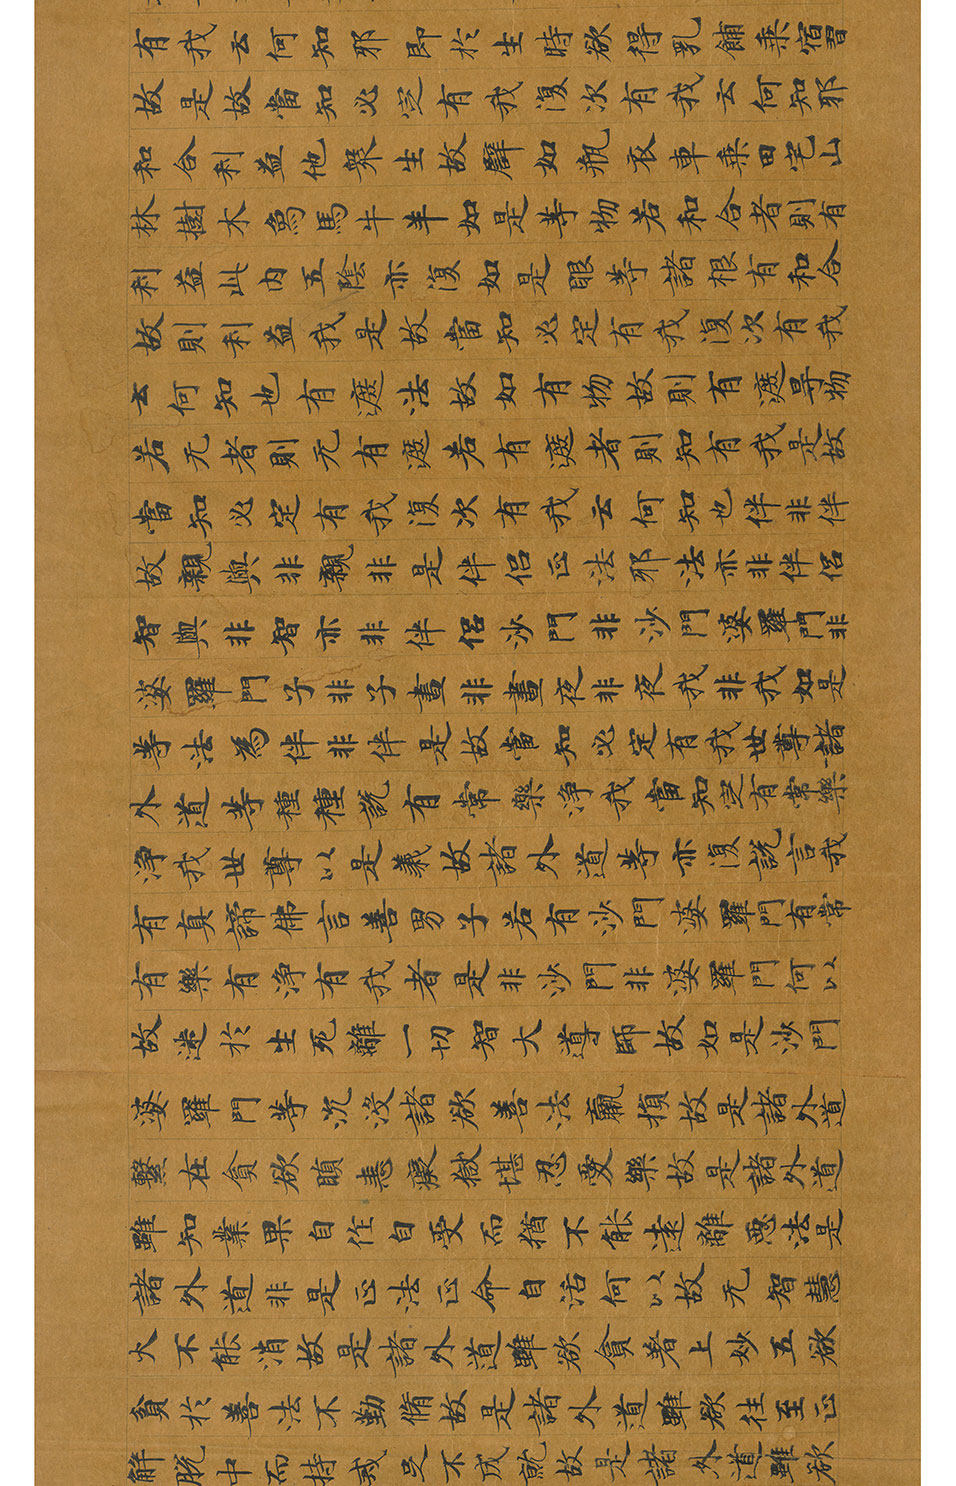 有我云何知邪即於生時欲得乳餔乘宿習
故是故當知必定有我復次有我云何知邪
和合利益他衆生故譬如瓶衣車乘田宅山
林樹木象馬牛羊如是等物若和合者則有
利益此內五陰亦復如是眼等諸根有和合
故則利益我是故當知必定有我復次有我
云何知也有遮法故如有物故則有遮㝵物
若无者則无有遮若有遮者則知有我是故
當知必定有我復次有我云何知也伴非伴
故親與非親非是伴侶正法邪法亦非伴侶
智與非智亦非伴侶沙門非沙門婆羅門非
婆羅門子非子晝非晝夜非夜我非我如是
等法為伴非伴是故當知必定有我世尊諸
外道等種種說有常樂淨我當知定有常樂
淨我世尊以是義故諸外道等亦復說言我
有真諦佛言善男子若有沙門婆羅門有常
有樂有淨有我者是非沙門非婆羅門何以
故迷於生死離一切智大導師故如是沙門
婆羅門等沉沒諸欲善法羸損故是諸外道
繫在貪欲瞋恚癡獄堪忍愛樂故是諸外道
雖知業果自作自受而猶不能遠離惡法是
諸外道非是正法正命自活何以故无智慧
火不能消故是諸外道雖欲貪著上妙五欲
貧於善法不勤脩故是諸外道雖欲往至正
解脫中而持戒足不成就故是諸外道雖欲